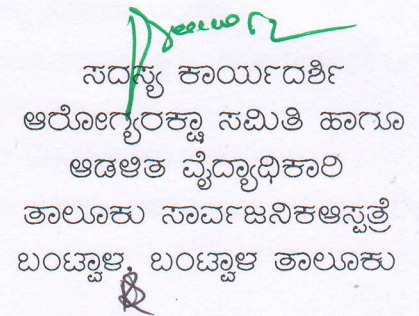 ಸದಸ್ಯ ಕಾರ್ಯದರ್ಶಿ
ಆರೋಗ್ಯರಕ್ಷಾ ಸಮಿತಿ ಹಾಗೂ
ಆಡಳಿತ ವೈದ್ಯಾಧಿಕಾರಿ
ತಾಲೂಕು ಸಾರ್ವಜನಿಕಆಸ್ಪತ್ರೆ
ಬಂಟ್ವಾಳ, ಬಂಟ್ವಾಳ ತಾಲೂಕು